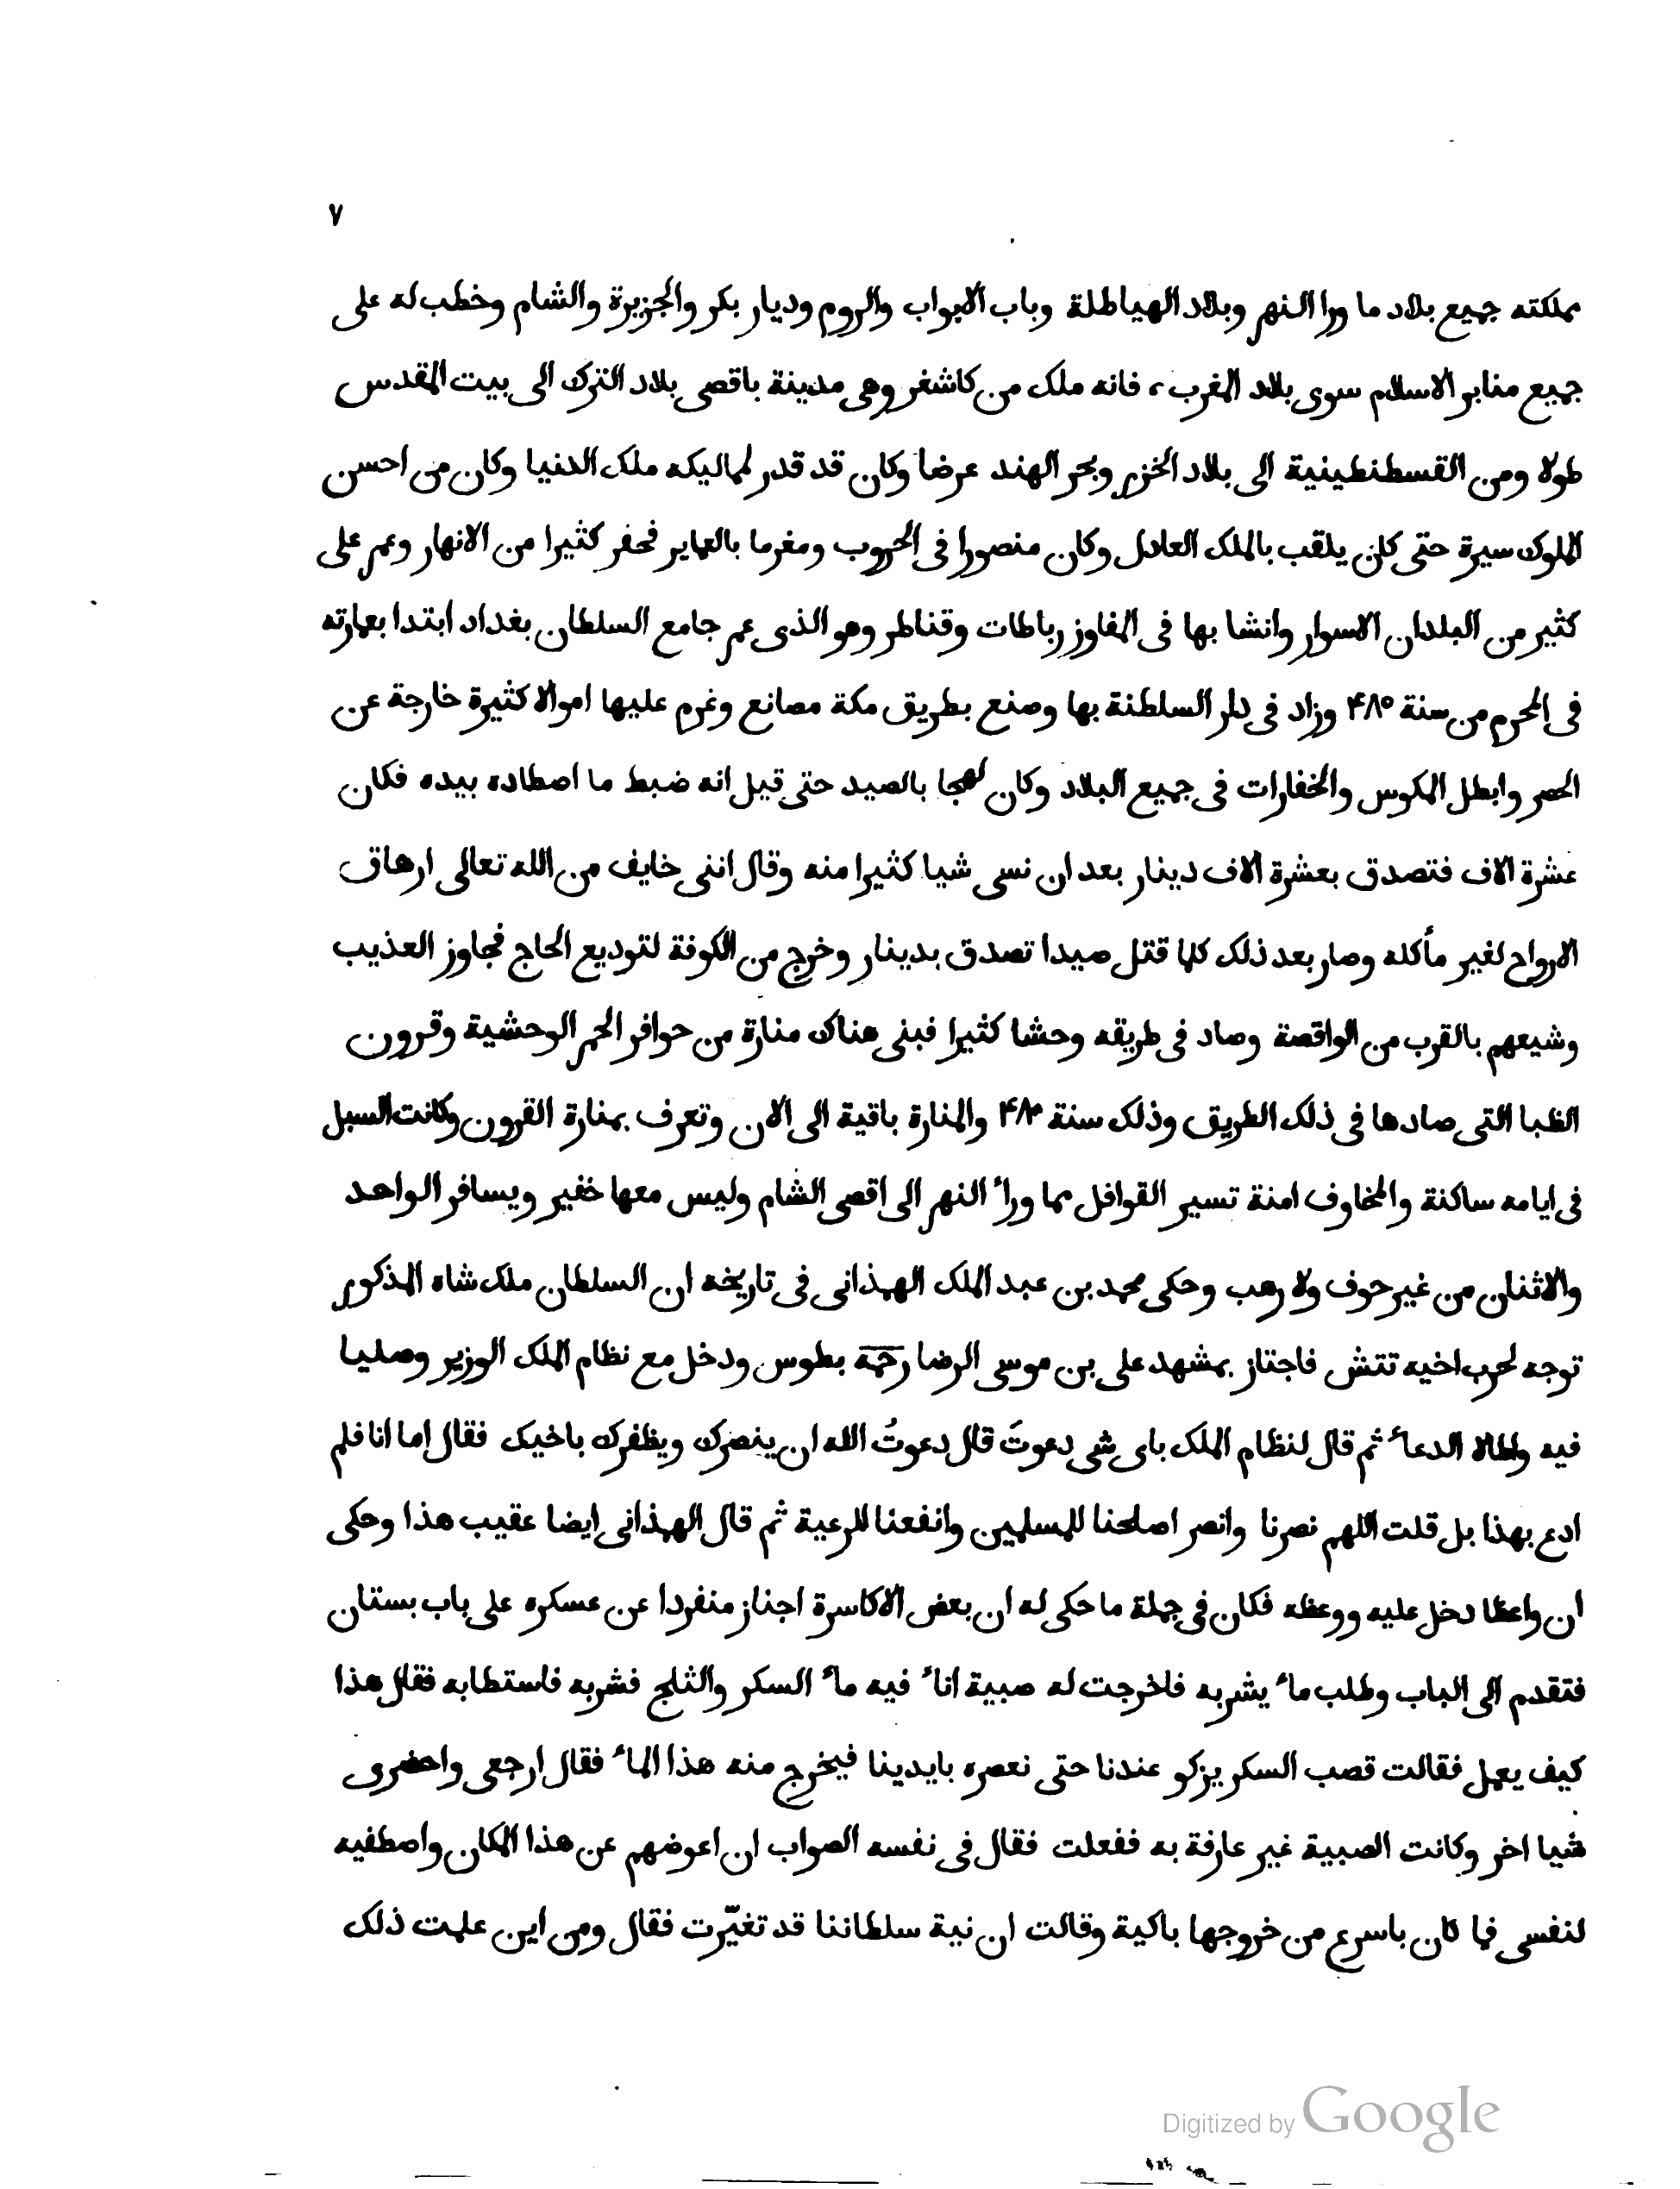 ٧
مملكته جميع بلاد ما ورا النهر وبلاد الهياطلة وباب الابواب والروم وديار بكر والجزيرة والشام وخطب له على
جميع منابر الاسلام سوى بلاد المغرب، فانه ملك من كاشغر وهى مدينة باقصى بلاد الترك الى بيت المقدس
طولا ومن القسطنطينية الى بلاد الخزر وبحر الهند عرضا وكان قد قدر لماليكه ملك الدنيا وكان من احسن
الملوك سيرة حتى كان يلقب بالملك العادل وكان منصورا فى الحروب ومغرما بالعماير فحفر كثيرا من الانهار وعمر على
كثير من البلدان الاسوار وانشا بها فى المفاوز رباطات وقناطر وهو الذى عمر جامع السلطان ببغداد ابتدا بعمارته
فى المحرم من سنة ۴۸۵ وزاد فى دار السلطنة بها وصنع بطريق مكة مصانع وغرم عليها اموالا كثيرة خارجة عن
الحصر وابطل المكوس والخفارات فى جميع البلاد وكان لهجا بالصيد حتى قيل انه ضبط ما اصطاده بيده فكان
عشرة الاف فتصدق بعشرة الاف دينار بعد ان نسى شيا كثيرا منه وقال اننى خايف من الله تعالى ارهاق
الارواح لغير مأكله وصار بعد ذلك كلما قتل صيدا تصدق بدينار وخرج من الكوفة لتوديع الحاج فجاوز العذيب
وشيعهم بالقرب من الواقصة وصاد فى طريقه وحشا كثيرا فبنى هناك منارة من حوافر الحمر الوحشية وقرون
الظبا التى صادها فى ذلك الطريق وذلك سنة والمنارة باقية الى الان وتعرف بمنارة القرون وكانت السبل
فى ايامه ساكنة والمخاوف امنة تسير القوافل مما وراء النهر الى اقصى الشام وليس معها خفير ويسافر الواحد
والاثنان من غير حوف ولا رهب وحكى محمد بن عبد الملك الهمذانى فى تاريخه ان السلطان ملك شاه المذكور
توجه لحرب اخيه تتش فاجتاز بمشهد على بن موسى الرضا رحمة بطوس ودخل مع نظام الملك الوزير وصليا
فيه واطالا الدعاء ثم قال لنظام الملك باى شى دعوتَ قال دعوتُ الله ان ينصرك ويظفرك باخيك فقال اما انا فلم
ادع بهذا بل قلت اللهم نصرنا وانصر اصلحنا للمسلمين وانفعنا للرعية ثم قال الهمذانى ايضا عقيب هذا وحكى
ان واعظا دخل عليه ووعظه فكان فى جملة ما حكى له ان بعض الاكاسرة اجتاز منفردا عن عسكره على باب بستان
فتقدم الى الباب وطلب ماء يشربه فاخرجت له صبية اناء فيه ماء السكر والثلج فشربه فاستطابه فقال هذا
كيف يعمل فقالت قصب السكر يزكو عندنا حتى نعصره بايدينا فيخرج منه هذا الماء فقال ارجعى واحضرى
شيا اخر وكانت الصبية غير عارفة به ففعلت فقال فى نفسه الصواب ان اعوضهم عن هذا المكان واصطفيه
لنفسى فما كان باسرع من خروجها باكية وقالت ان نية سلطاننا قد تغيّرت فقال ومن اين علمت ذلك
Digitized by Google